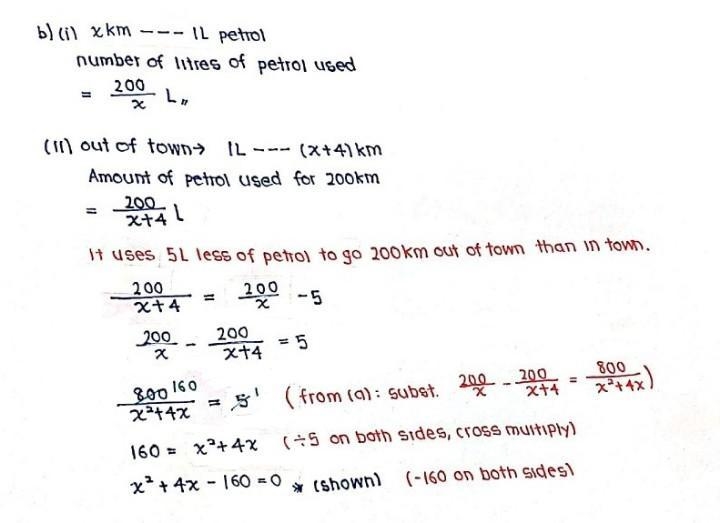 b) (i) x km --- 1L petrol
number of litres of petrol used
= 200/x L,,
(II) out of town → 1L --- (x+4) km
Amount of petrol used for 200km
= 200/x+4 L
It uses 5L less of petrol to go 200km out of town than in town.
200/x+4 = 200/x - 5
200/x - 200/x+4 = 5
800 160/x²+4x = 5 1 (from (a): subst. 200/x - 200/x+4 = 800/x²+4x)
160 = x²+4x (÷5 on both sides, cross multiply)
x² + 4x - 160 = 0 * (shown) (-160 on both sides)